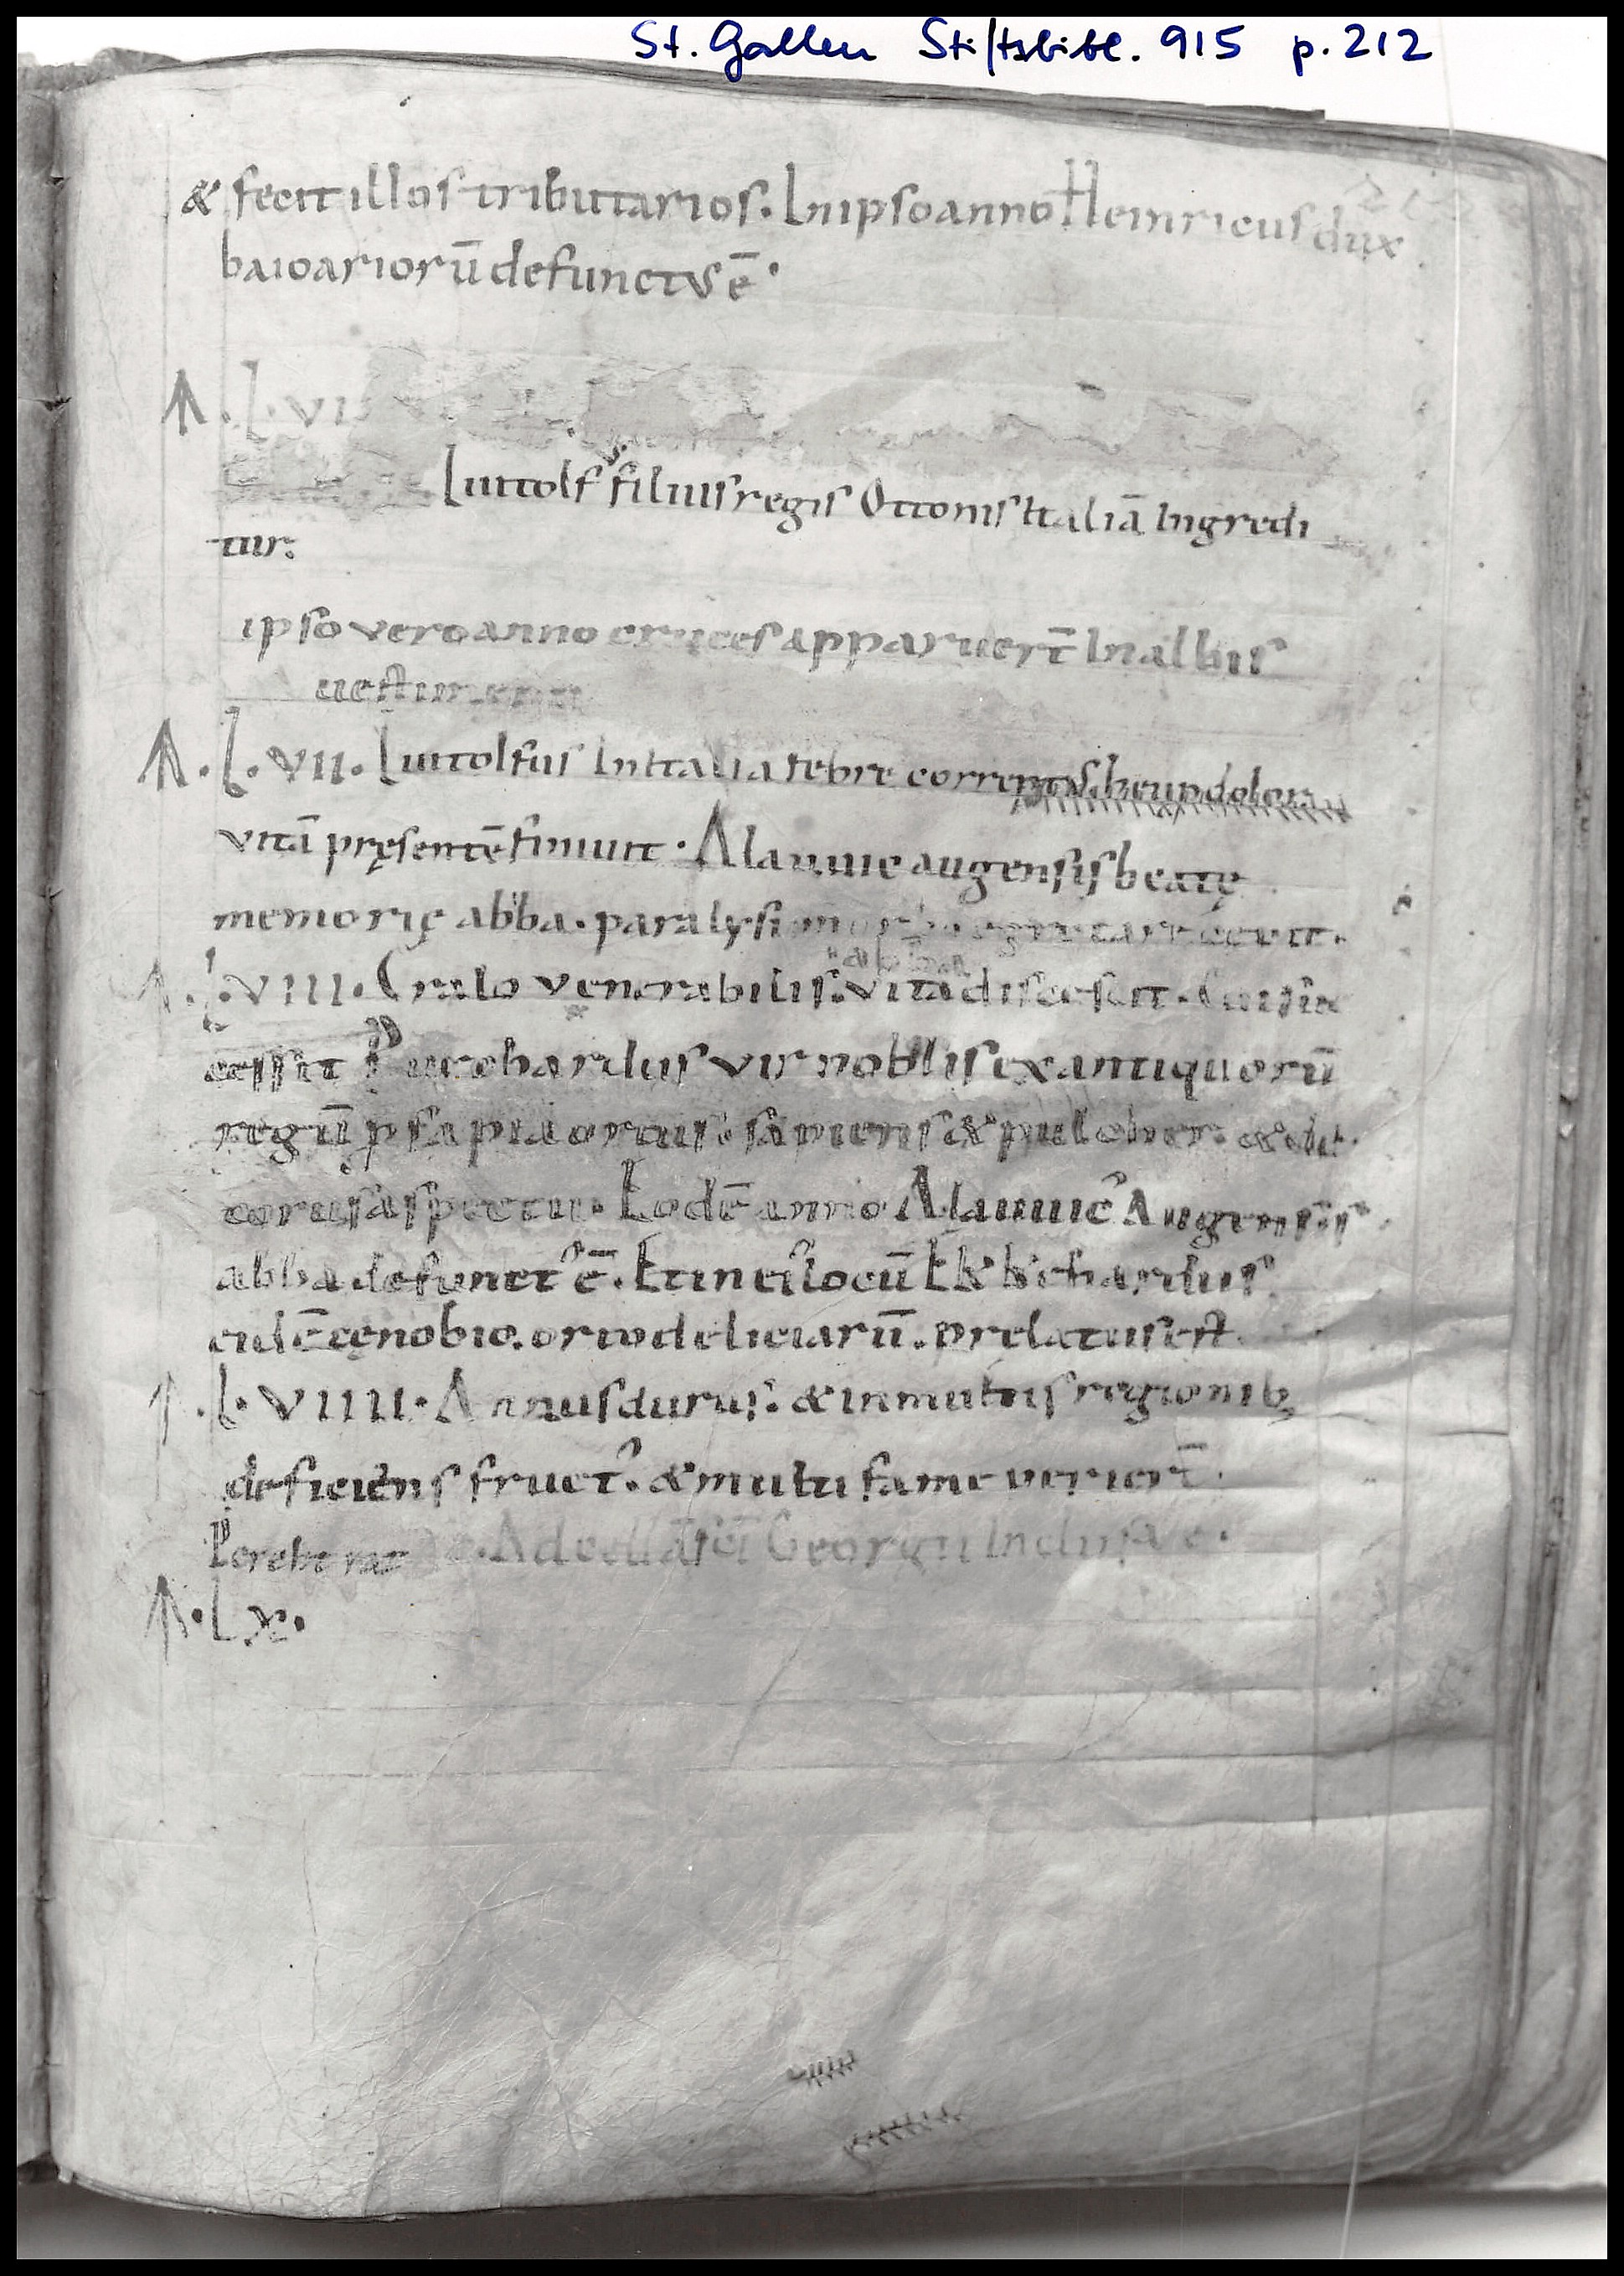 St. Gallen Stiftsbibl. 915 p. 212
& fecit illos tributarios. In ipso anno Heinricus dux
baioariorū defunctus ē.
.L.VI
Liutolf filius regis Ottonis Italiā Ingredi
tur.
ipso vero anno cruces apparuert̄ In albis
uestim
.L.VII. Liutolfus In Italia febre correptus heu pdolor
vitā pręsentē finiuit. Alauuic augensis beatę
memorię abba. paralysi
abba
.L.VIII. Cralo venerabilis. vita discessit. Cui suc
cessit Purchardus vir nobilis ex antiquorū
regū psapia ortus. sapiens & pulcher. &
corus aspectu. Eodē anno Alauuic Augensis
abba defunct' ē. Et in ei' locū Ekkihardus
eidē cęnobio. orto deliciarū. prelatus est
.L.VIIII. Annus durus. & in multis regionib;
deficiens fruct'. & multi fame perier̄t.
Percht rat . Ad cellā scī Georgii Inclusa e.
.LX.